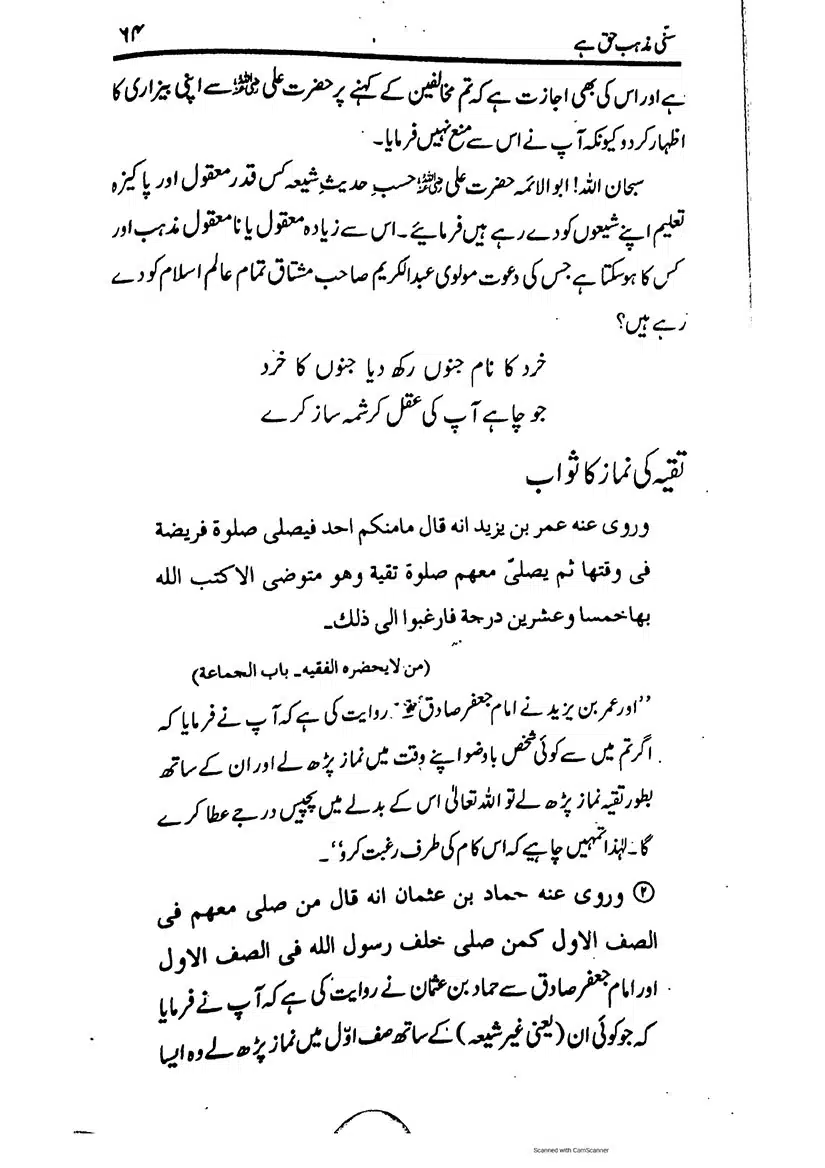 سنی مذہب حق ہے ۶۴
ہے اور اس کی بھی اجازت ہے کہ تم مخالفین کے کہنے پر حضرت علی رضی اللہ عنہ سے اپنی بیزاری کا
اظہار کر دو کیونکہ آپ نے اس سے منع نہیں فرمایا۔
سبحان اللہ! ابوالائمہ حضرت علی رضی اللہ عنہ حسبِ حدیثِ شیعہ کس قدر معقول اور پاکیزہ
تعلیم اپنے شیعوں کو دے رہے ہیں فرمائیے۔ اس سے زیادہ معقول یا نامعقول مذہب اور
کس کا ہوسکتا ہے جس کی دعوت مولوی عبدالکریم صاحب مشتاق تمام عالم اسلام کو دے
رہے ہیں؟
خرد کا نام جنوں رکھ دیا جنوں کا خرد
جو چاہے آپ کی عقل کرشمہ ساز کرے
تقیہ کی نماز کا ثواب
وروی عنہ عمر بن یزید انہ قال مامنکم احد فیصلی صلوۃ فریضۃ
فی وقتھا ثم یصلیّ معھم صلوۃ تقیۃ وھو متوضی الاکتب اللہ
بھاخمسا وعشرین درجۃ فارغبوا الی ذلک۔
(من لایحضرہ الفقیہ۔ باب الجماعۃ)
’’اور عمر بن یزید نے امام جعفر صادق سے روایت کی ہے کہ آپ نے فرمایا کہ
اگر تم میں سے کوئی شخص باوضو اپنے وقت میں نماز پڑھ لے اور ان کے ساتھ
بطور تقیہ نماز پڑھ لے تو اللہ تعالیٰ اس کے بدلے میں پچیس درجے عطا کرے
گا۔ لہٰذا تمہیں چاہیے کہ اس کام کی طرف رغبت کرو‘‘۔
② وروی عنہ حماد بن عثمان انہ قال من صلی معھم فی
الصف الاول کمن صلی خلف رسول اللہ فی الصف الاول
اور امام جعفر صادق سے حماد بن عثمان نے روایت کی ہے کہ آپ نے فرمایا
کہ جو کوئی ان (یعنی غیر شیعہ) کے ساتھ صف اوّل میں نماز پڑھ لے وہ ایسا
Scanned with CamScanner